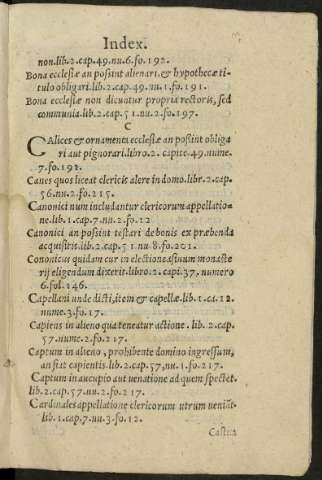 Index.
non.lib.2.cap.49.nu.6.fo.192.
Bona ecclesiæ an possint alienari.& hypothecæ ti-
tulo obligari.lib.2.cap.49.nu.1.fo.191.
Bona ecclesiæ non dicuntur propria rectoris, sed
communia.lib.2.cap.51.nu.2.fo.197.
C
CAlices & ornamenta ecclesiæ an possint obliga
ri aut pignorari.libro.2. capite.49.nume.
7.fo.192.
Canes quos liceat clericis alere in domo.libr.2.cap.
56.nu.2.fo.215.
Canonici num includantur clericorum appellatio-
ne.lib.1.cap.7.nu.2.fo.12
Canonici an possint testari de bonis ex præbenda
acquisitis.lib.2.cap.51.nu.8.fo.201.
Cononicus quidam cur in electione asinum monaste
rij eligendum dixerit.libro.2.capi.37.numero
6.fol.146.
Capellani unde dicti,item & capellæ.lib.1.ca.12.
nume.3.fo.17.
Capiens in alieno qua teneatur actione. lib. 2.cap.
57.nume.2.fo.217.
Captum in alieno, prohibente domino ingressum,
an fiat capientis.lib.2.cap.57.nu.1.fo.217.
Captum in aucupio aut uenatione ad quem spectet.
lib.2.cap.57.nu.2.fo.217.
Cardinales appellatione clericorum utrum ueniāt.
lib.1.cap.7.nu.3.fo.12.